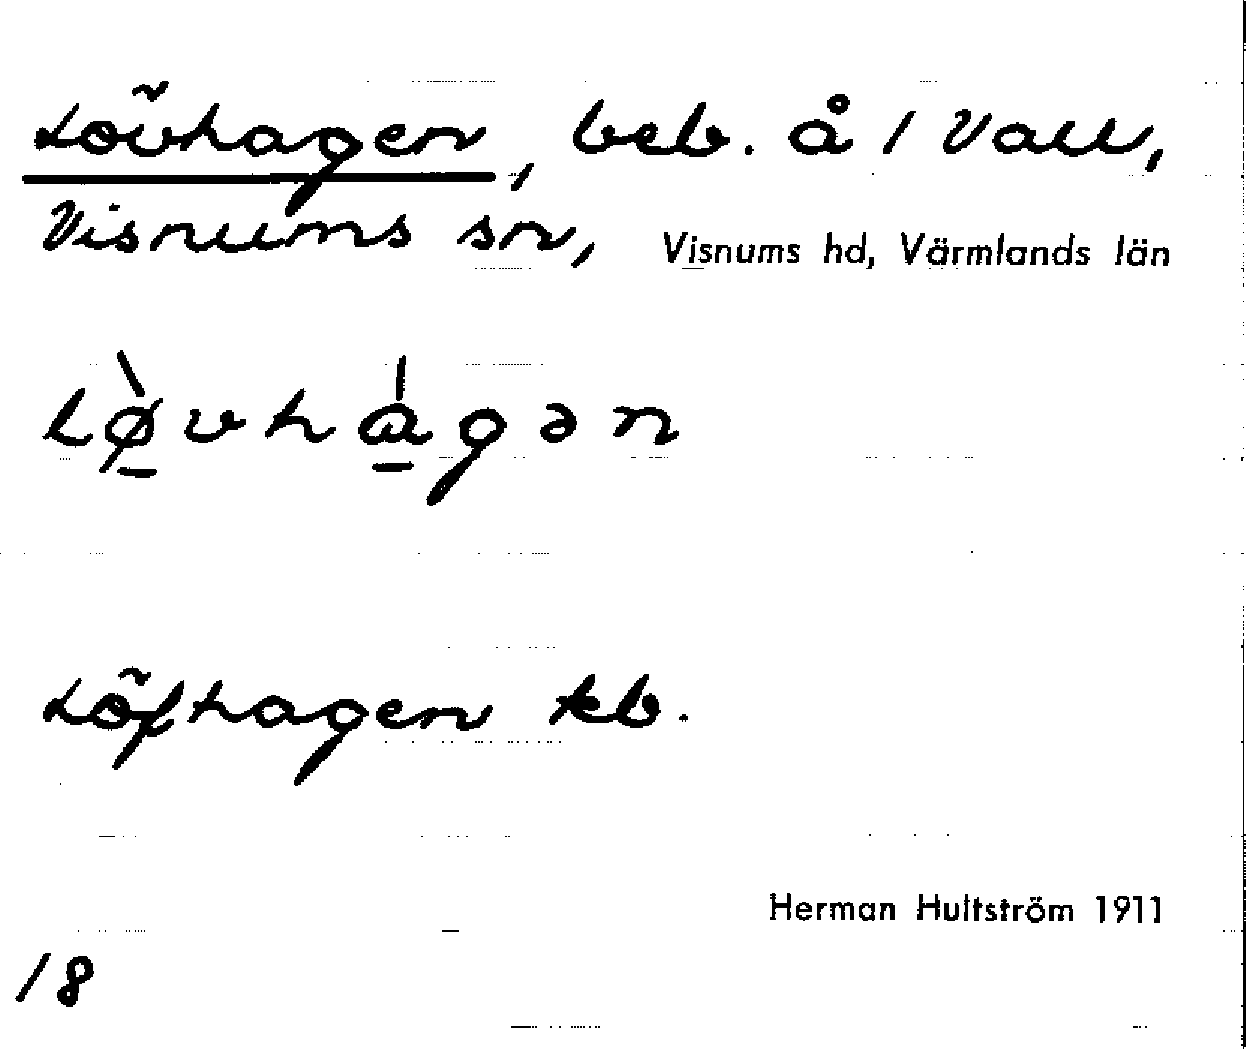 Lövhagen, beb. å 1 Vall,
Visnums sn, Visnums hd, Värmlands län
lø̱̀vhá̱gən
Löfhagen kb.
Herman Hultström 1911
18